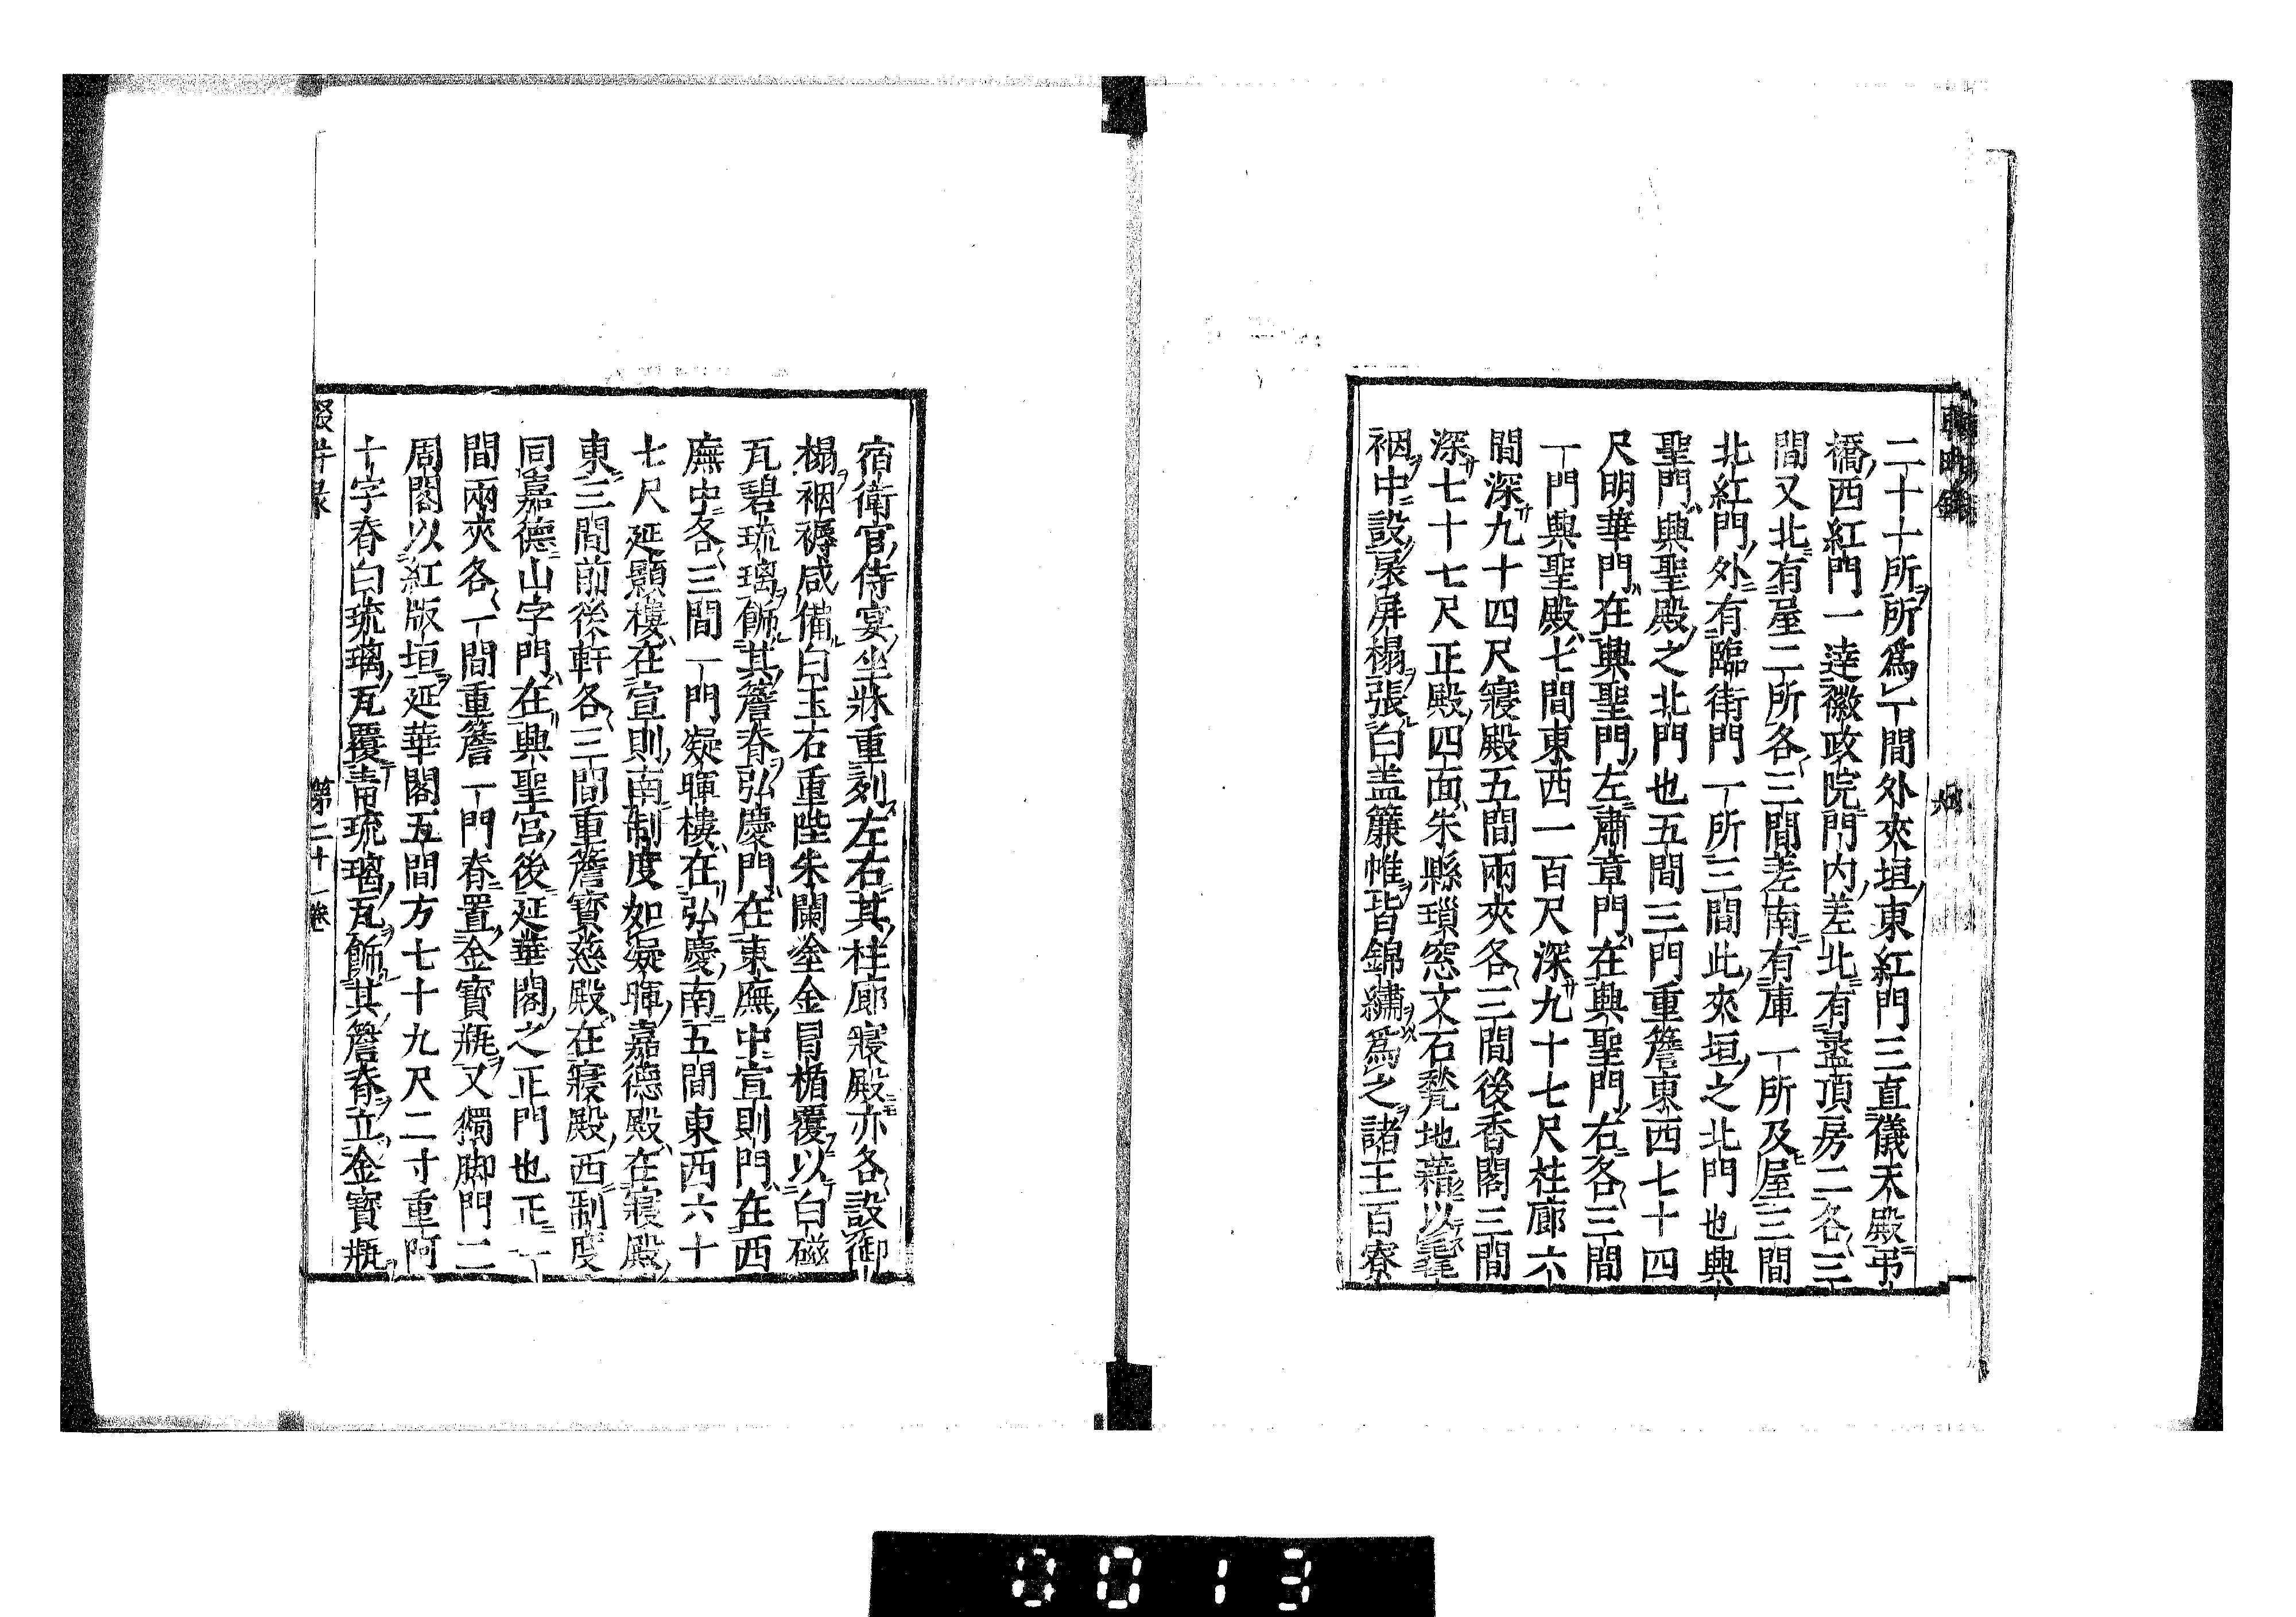 二十十所所爲一間外夾垣東紅門三直儀天殿弔
橋西紅門一達徽政院門內差北有盝頂房二各三
間又北有屋二所各三間差南有庫一所及屋三間
北紅門外有臨街門一所三間此夾垣之北門也興
聖門興聖殿之北門也五間三門重簷東西七十四
尺明華門在興聖門左肅章門在興聖門右各三間
一門興聖殿七間東西一百尺深九十七尺柱廊六
間深九十四尺寢殿五間兩夾各三間後香閣三間
深七十七尺正殿四面朱縣瑣窓文石甃地藉以毳
裀中設扆屏榻張白盖簾帷皆錦繡爲之諸王百寮
宿衛官侍宴坐牀重列左右其柱廊寢殿亦各設御
榻裀褥咸備白玉石重陛朱闌塗金冒楯覆以白磁
瓦碧琉璃飾其簷脊弘慶門在東廡中宣則門在西
廡中各三間一門凝暉樓在弘慶南五間東西六十
七尺延顥樓在宣則南制度如凝暉嘉德殿在寢殿
東三間前後軒各三間重簷寶慈殿在寢殿西制度
同嘉德山字門在興聖宮後延華閣之正門也正一
間兩夾各一間重簷一門脊置金寶瓶又獨脚門二
周閣以紅版垣延華閣五間方七十九尺二寸重阿
十字脊白琉璃瓦覆靑琉璃瓦飾其簷脊立金寶瓶
輟耕录
第二十一卷
0013